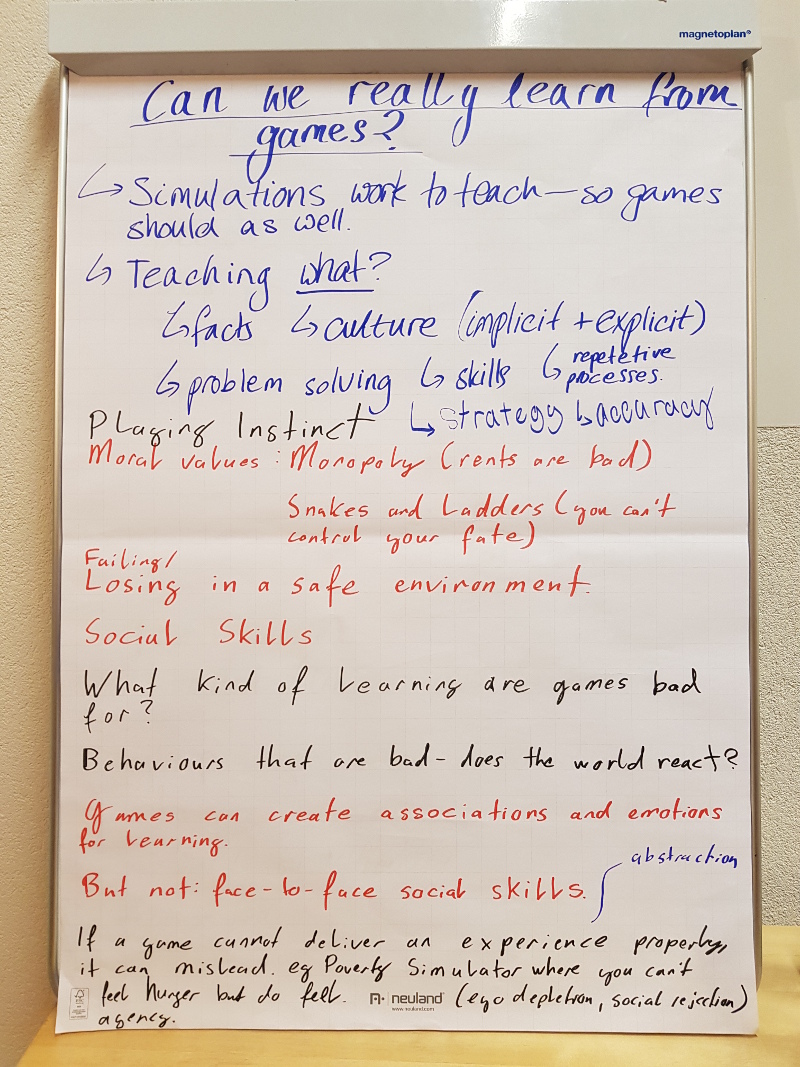 magnetoplan®
Can we really learn from
games?
↳ Simulations work to teach — so games
should as well.
↳ Teaching what?
↳ facts ↳ culture (implicit + explicit)
↳ problem solving ↳ skills ↳ repetetive
processes.
Playing Instinct ↳ strategy ↳ accuracy
Moral values: Monopoly (rents are bad)
Snakes and Ladders (you can't
control your fate)
Failing/
Losing in a safe environment.
Social Skills
What kind of learning are games bad
for?
Behaviours that are bad - does the world react?
Games can create associations and emotions
for learning.
abstraction
But not: face-to-face social skills.
If a game cannot deliver an experience properly,
it can mislead. eg Poverty Simulator where you can't
feel hunger but do fell. neuland (ego depletion, social rejection)
www.neuland.com
agency.